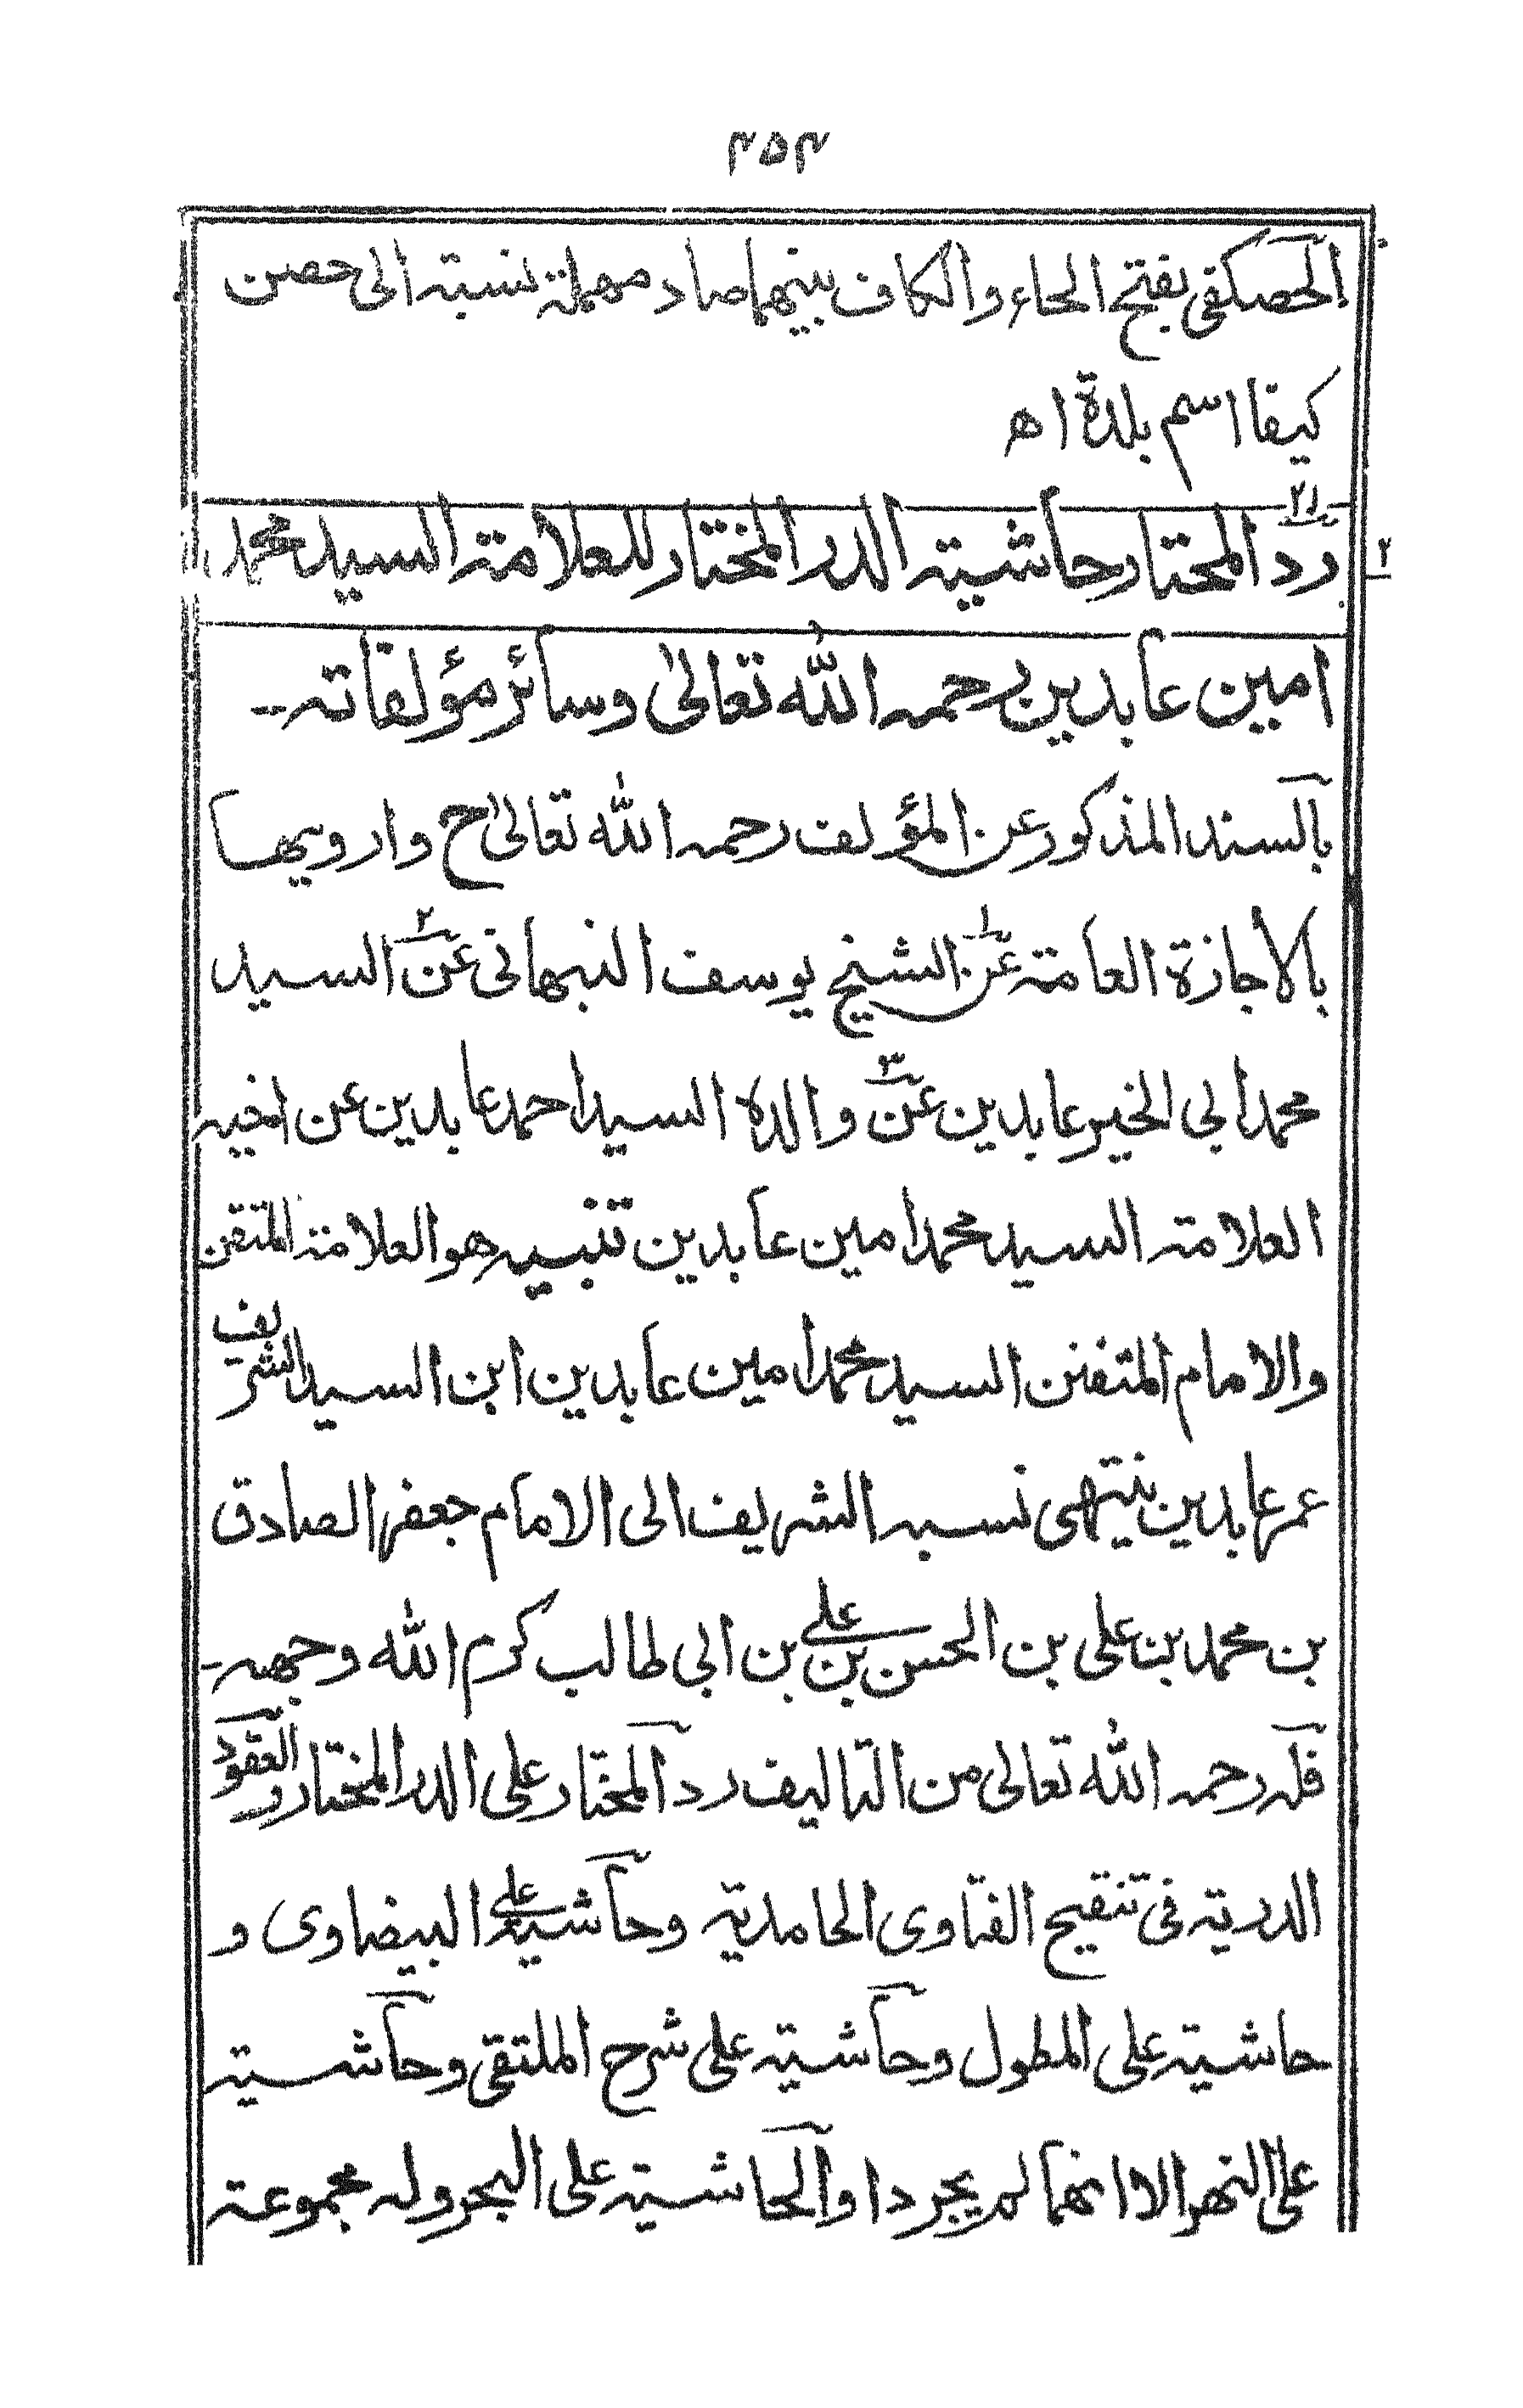 ٣٥٣
الحصكفى بفتح الحاء والكاف بينهما صاد مهملة نسبة الى حصن
كيفا اسم بلدة اھ
٢١
رد المحتار حاشية الدر المختار للعلامة السيد محمد
٢
امين عابدين رحمه الله تعالىٰ وسائر مؤلفاته --
بالسند المذكور عن المؤلف رحمه الله تعالىٰ ح وارويها
بالاجازة العامة عن١ الشيخ يوسف النبهانى عن٢ السيد
محمد ابى الخير عابدين عن٣ والده السيد احمد عابدين عن اخيه
العلامة السيد محمد امين عابدين تنبيه هو العلامة المتقن
والامام المتفنن السيد محمد امين عابدين ابن السيد الشريف
عمر عابدين ينتهى نسبه الشريف الى الامام جعفر الصادق
بن محمد بن على بن الحسن بن على بن ابى طالب كرم الله وجهه -
فله رحمه الله تعالى من التاليف رد المحتار على الدر المختار والعقود
الدرية فى تنقيح الفتاوى الحامدية وحاشية على البيضاوى و
حاشية على المطول وحاشية على شرح الملتقى وحاشية
على النهر الا انهما لم يجردا والحاشية على البحر وله مجموعة